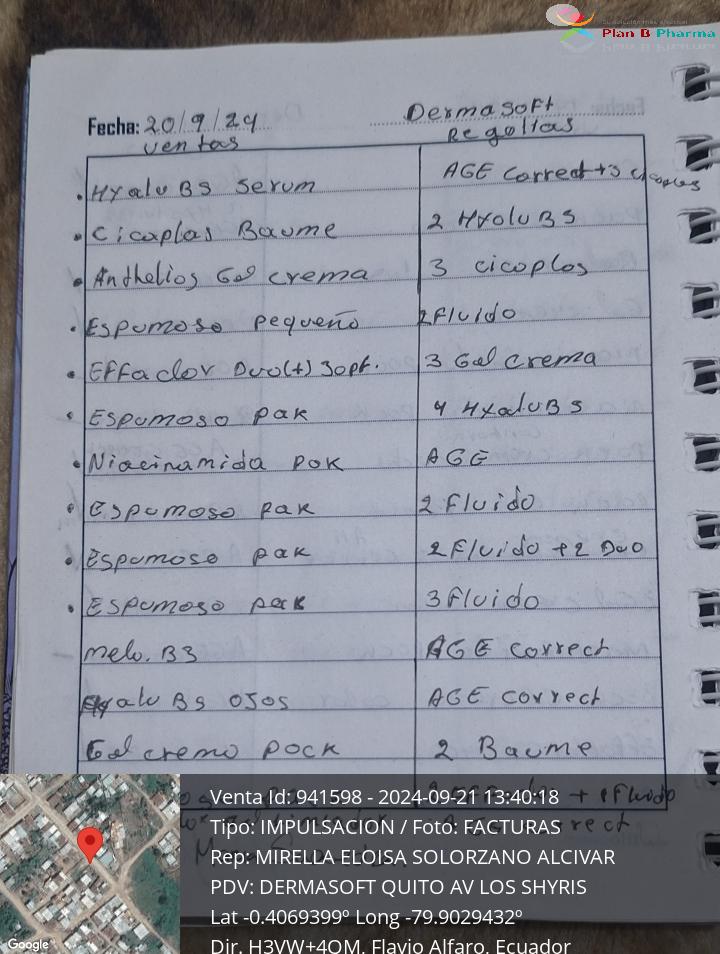 Plan B Pharma
Fecha: 20/9/24 DermaSoft
ventas Regolias
• Hyalu B5 serum AGE correct +3 cicoplas
• Cicaplas Baume 2 Hyalu B5
• Anthelios Gel crema 3 cicoplos
• Espumoso pequeño 2 Fluido
• Effaclor Duo(+) 30pt. 3 Gel crema
• Espumoso pak 4 Hyalu B5
• Niacinamida pok AGE
• Espumoso pak 2 Fluido
• Espumoso pak 2 Fluido + 2 Duo
• Espumoso pack 3 Fluido
melo. B3 AGE correct
Hyalu B5 ojos AGE correct
Gel cremo pock 2 Baume
+ 1 Fluido
Venta Id: 941598 - 2024-09-21 13:40:18
Tipo: IMPULSACION / Foto: FACTURAS
Rep: MIRELLA ELOISA SOLORZANO ALCIVAR
PDV: DERMASOFT QUITO AV LOS SHYRIS
Lat -0.4069399º Long -79.9029432º
Dir. H3VW+4QM, Flavio Alfaro, Ecuador
Google